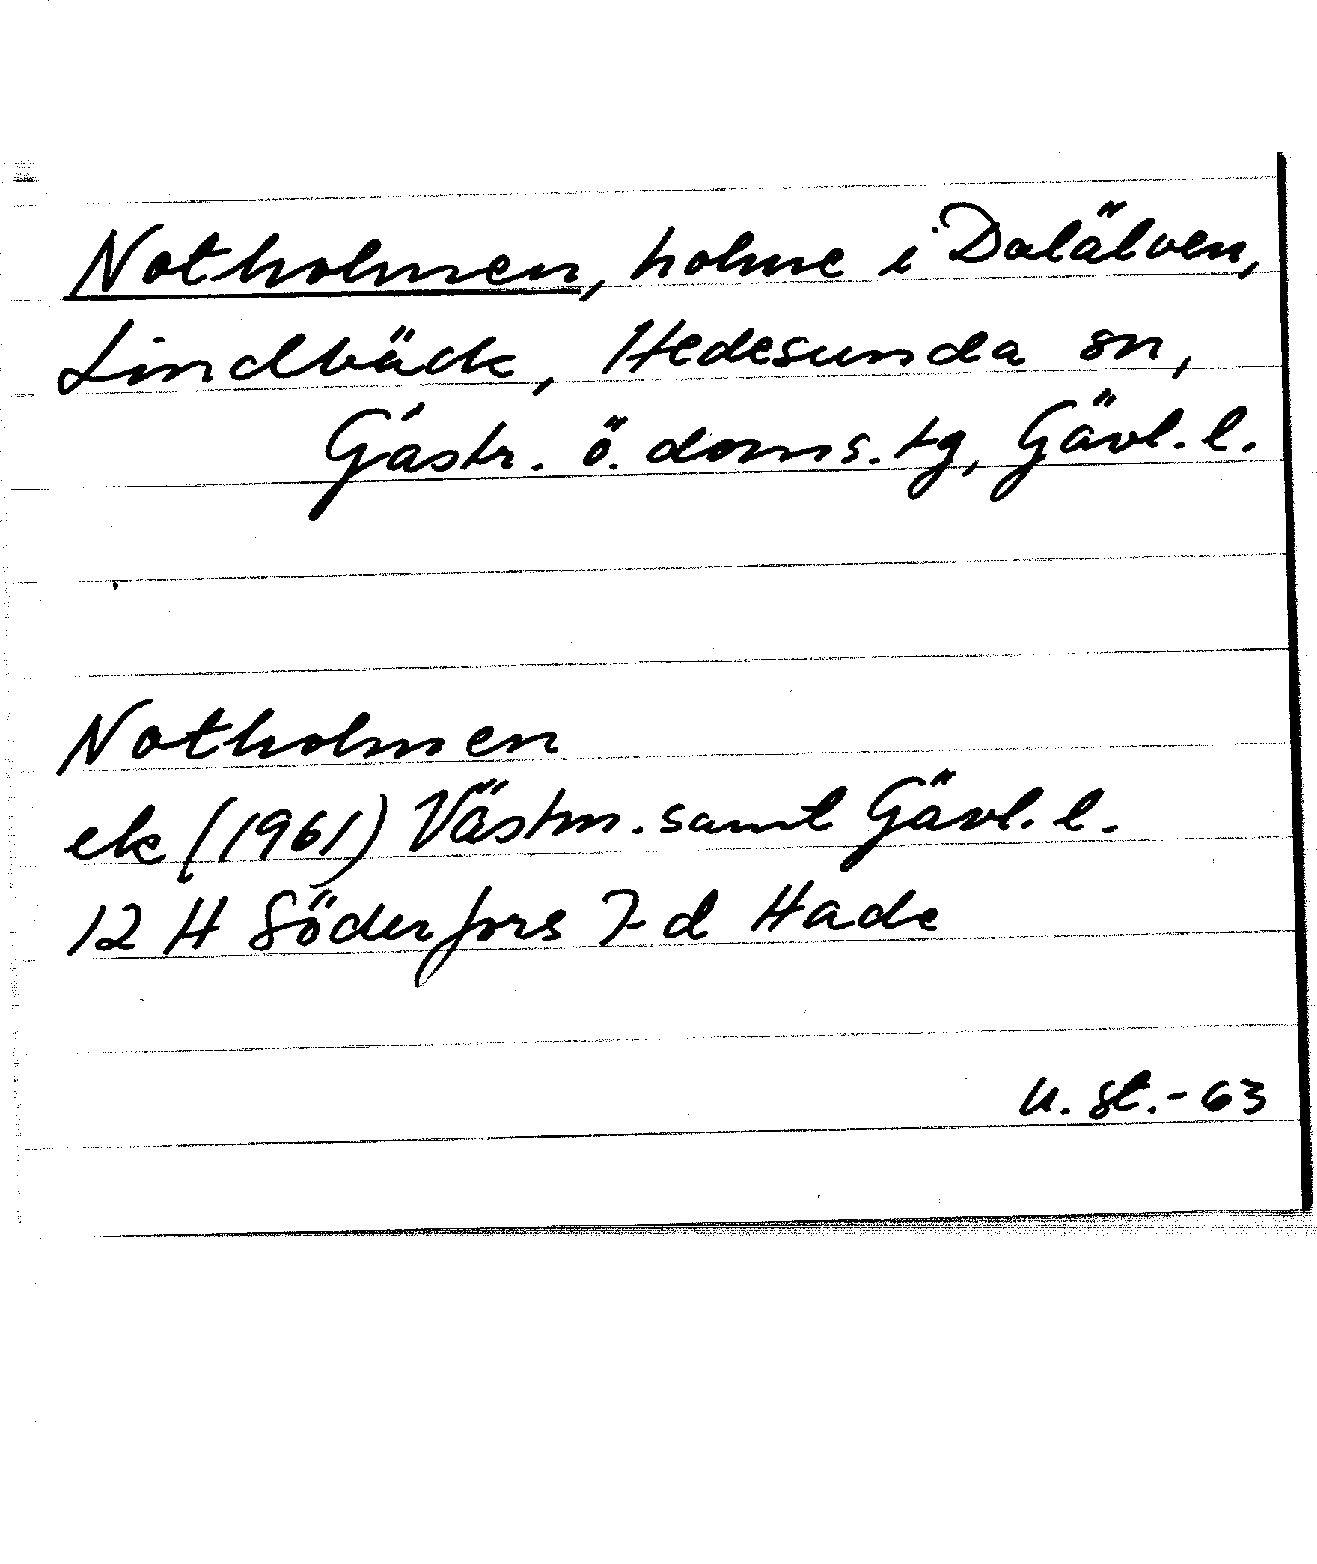 Notholmen, holme i Dalälven,
Lindbäck, Hedesunda sn,
Gästr. ö. doms. tg, Gävl. l.
Notholmen
ek (1961) Västm. samt Gävl. l.
12 H Söderfors 7-d Hade
u. st. - 63